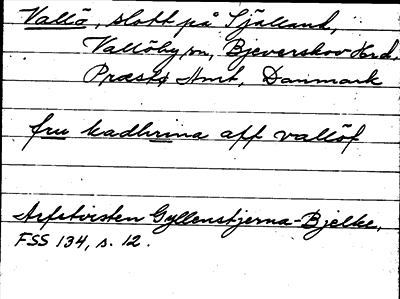 Vallö, slott på Själland,
Vallöby sn, Bjeverskov Hrd,
Præstø Amt, Danmark
fru kadhrina aff vallöf
Arfstvisten Gyllenstjerna-Bjelke,
FSS 134, s. 12.